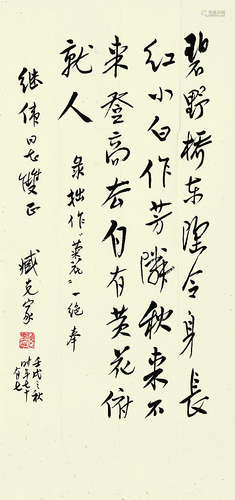 碧野桥东陶令身長
红小白作芳隣秋来不
登高去自有黄花俯
就人
录拙作“菊花”一绝奉
继伟同志雙正
臧克家
壬戌之秋
时年七十
有七